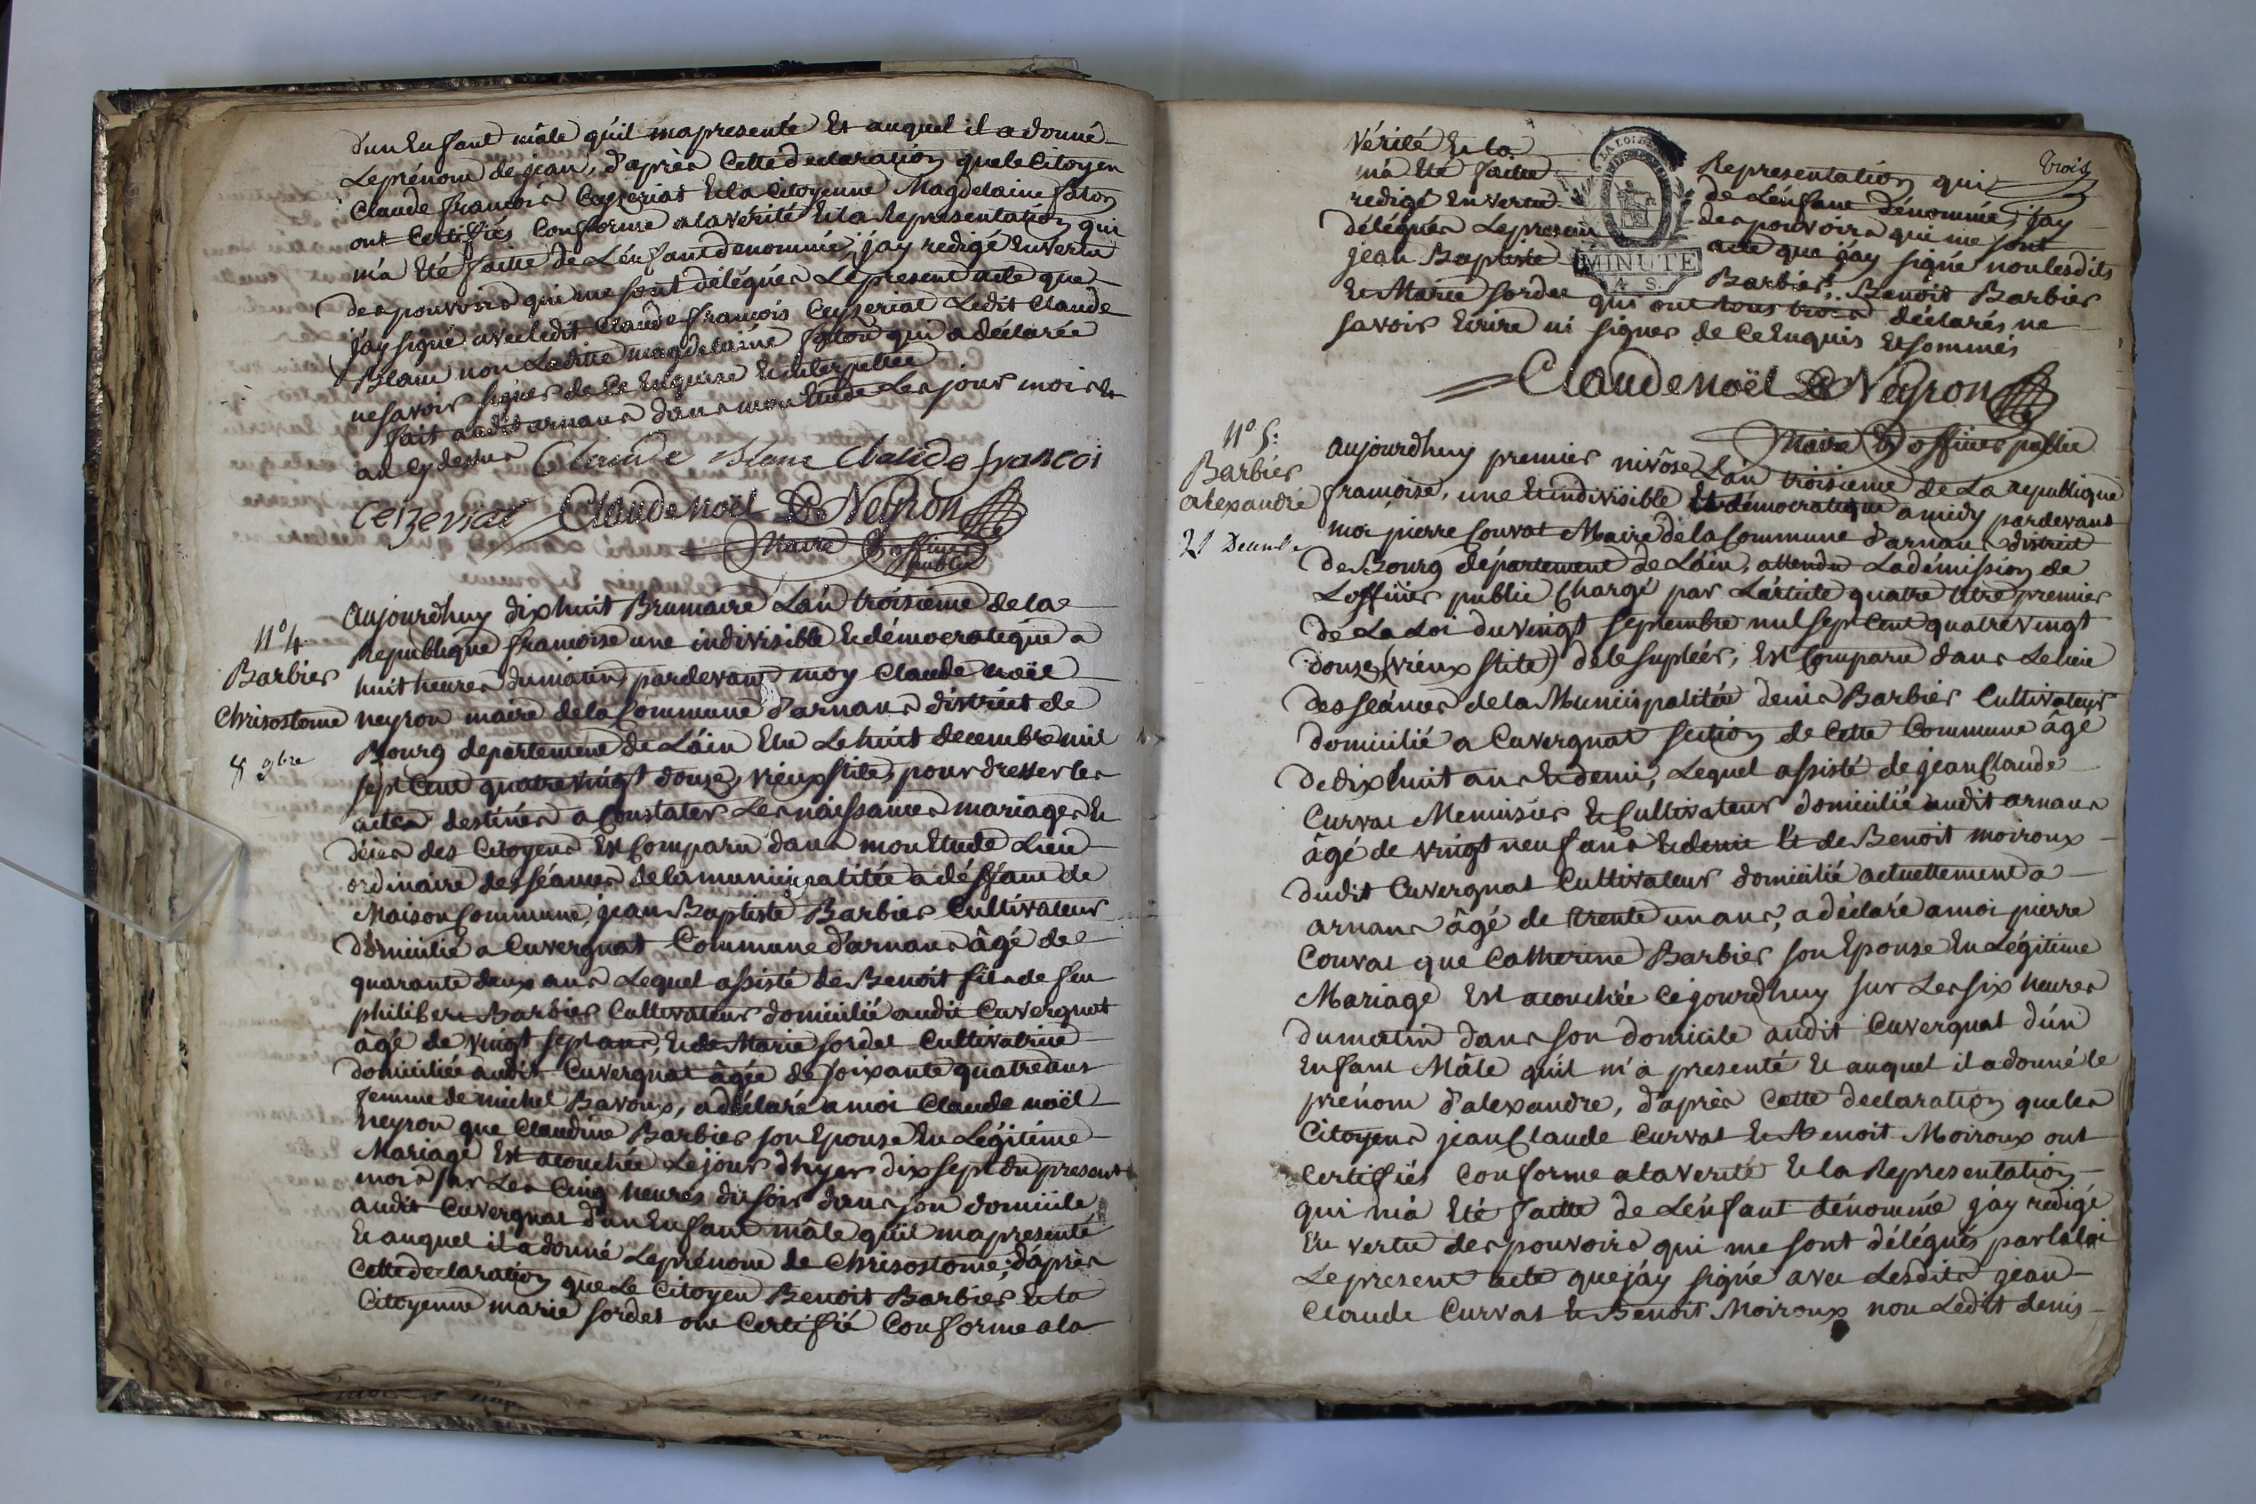 d'un Enfant mâle qu'il ma presenté Et auquel il a donné
Le prénom de jean, d'après Cette declaration que le Citoyen
Claude françois Ceyzeriat Et la Citoyenne Magdelaine
ont Certifiés Conforme a la vérité Et la Representation qui
m'a Eté faitte de L'énfant denommée, j'ay redigé En vertu
des pouvoirs qui me sont délégués Le present acte que
j'ay signé avec Ledit Claude françois Ceyseriat Ledit Claude
Blanc non Laditte magdelaine qui a déclarée
ne savoir signer de Ce Enquise Et interpellée
fait audit arnans dans mon Etude Les jour mois Et
an Cy dessus Claude Blanc Claude francoi
ceizeriat Claude Noël Neyron
Maire & officier
public
N° 4
Barbier
Chrisostome
8 9bre
aujourdhuy dix huit Brumaire L'an troisieme de la
Republique françoise une indivisible Et démocratique a
huit heures du matin pardevant moy Claude noël
neyron maire de la Commune d'arnans district de
Bourg departement de L'ain Elu Le huit decembre mil
sept Cent quatrevingt douze, vieux stile, pour dresser les
actes destinés a Constater Les naissances mariages Et
décès des Citoyens Est Comparu dans mon Etude Lieu
ordinaire des séances de la municipalitée a déffaut de
Maison Commune, jean Baptiste Barbier Cultivateur
domicilié a Cuvergnat Commune d'arnans âgé de
quarante deux ans Lequel assisté de Benoit fils de feu
philibert Barbier Cultivateur domicilié audit Cuvergnat
âgé de vingt sept ans, Et de Marie sordet Cultivatrice
domiciliée audit Cuvergnat âgée de soixante quatre ans
femme de michel Bavoux, a déclaré a moi Claude noël
neyron que Claudine Barbier son Epouse En Légitime
Mariage Est acouchée Le jour d'hyer dix sept du present
mois sur Les Cinq heures du soir dans son domicile
audit Cuvergnat d'un Enfant mâle qu'il ma presenté
Et auquel il a donné Le prénom de Chrisostome; d'après
Cette declaration que Le Citoyen Benoit Barbier Et la
Citoyenne marie sordet ont Certifié Conforme a la
trois
Vérité Et la Representation qui
m'a Eté faitte de L'énfant dénommé, j'ay
redigé En vertu des pouvoirs qui me sont
délégués Le present acte que j'ay signé non lesdits
jean Baptiste Barbier, Benoit Barbier
Et Marie sordet qui ont tous trois déclarés ne
savoir Ecrire ni signer de Ce Enquis Et sommés
LA LOI
MINUTE
4 S.
Claude Noël Neyron
Maire & officier public
N° 5:
Barbier
alexandre
21 Decembre
aujourdhuy premier nivôse L'an troisieme de La republique
françoise, une Et indivisible Et démocratique a midy pardevant
moi pierre Couvat Maire de la Commune d'arnans district
de Bourg département de L'ain, attendu La démission de
L'officier public Chargé par L'article quatre titre premier
de La Loi du vingt septembre mil sept Cent quatrevingt
douze (vieux stile) de le supléer, Est Comparu dans Le lieu
des séances de la Municipalitée denis Barbier Cultivateur
domicilié a Cuvergnat section de Cette Commune âgé
de dix huit ans Et demi, Lequel assisté de jean Claude
Curvat Menuisier & Cultivateur domicilié audit arnans
âgé de vingt neuf ans Et demi Et de Benoit moiroux
dudit Cuvergnat Cultivateur domicilié actuellement a
arnans âgé de trente un ans, a déclaré a moi pierre
Couvat que Catherine Barbier son Epouse En Légitime
Mariage Est acouchée Cejourdhuy sur Les six heures
du matin dans son domicile audit Cuvergnat d'un
Enfant Mâle qu'il m'a presenté Et auquel il a donné le
prénom d'alexandre, d'après Cette declaration que les
Citoyens jean Claude Curvat Et Benoit Moiroux ont
Certifiés Conforme a la verité Et la Representation
qui m'a Eté faitte de L'énfant dénommé j'ay redigé
En vertu des pouvoirs qui me sont délégués par la loi
Le present acte que j'ay signé avec Lesdits jean
Claude Curvat Et Benoit Moiroux non Ledit denis